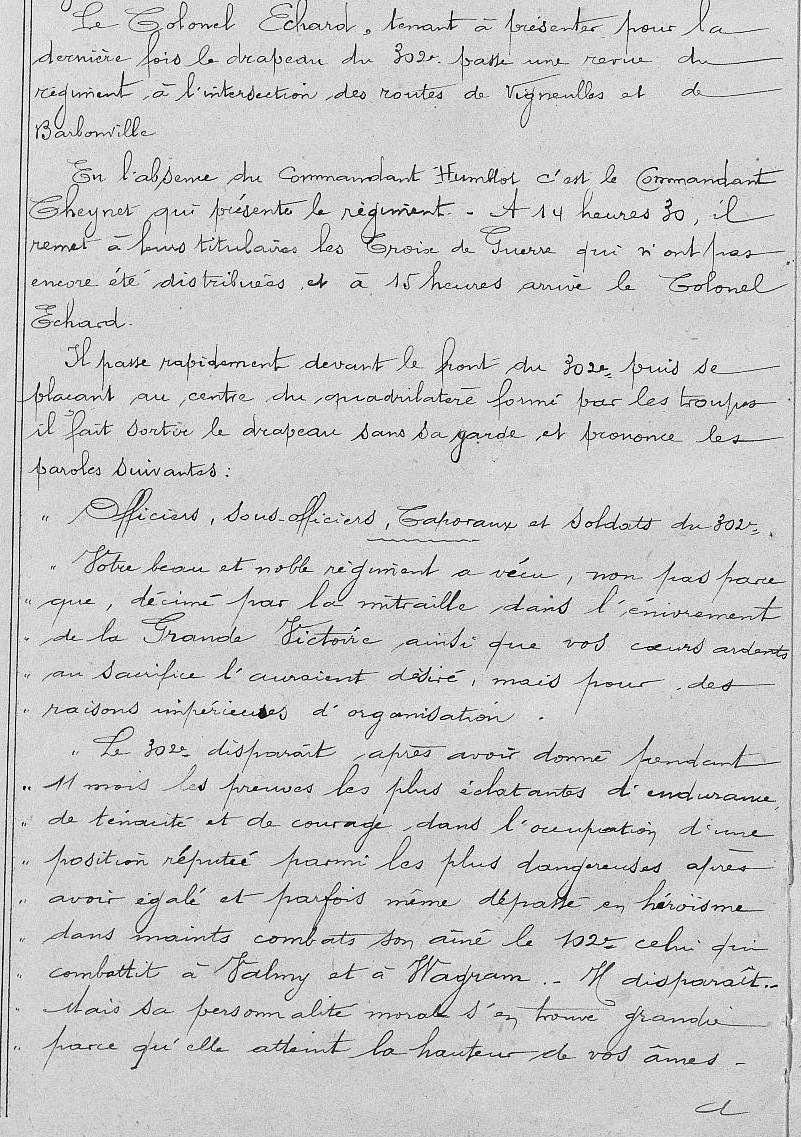 Le Colonel Echard, tenant à présenter pour la
dernière fois le drapeau du 302e passe une revue du
régiment à l'intersection des routes de Vigneulles et de
Barbonville
En l'absence du Commandant Humblot c'est le Commandant
Cheynet qui présente le régiment. - A 14 heures 30, il
remet à leurs titulaires les Croix de Guerre qui n'ont pas
encore été distribuées et à 15 heures arrive le Colonel
Echard.
Il passe rapidement devant le front du 302e, puis se
plaçant au centre du quadrilatère formé par les troupes
il fait sortir le drapeau sans sa garde et prononce les
paroles suivantes :
" Officiers, sous-officiers, Caporaux et soldats du 302e,
" Votre beau et noble régiment a vécu, non pas parce
" que, décimé par la mitraille dans l'énivrement
" de la Grande Victoire ainsi que vos cœurs ardents
" au sacrifice l'auraient désiré, mais pour des
" raisons impérieuses d'organisation .
" Le 302e disparaît après avoir donné pendant
" 11 mois les preuves les plus éclatantes d'endurance,
" de ténacité et de courage dans l'occupation d'une
" position réputée parmi les plus dangereuses après
" avoir égalé et parfois même dépassé en héroïsme
" dans maints combats son aîné le 102e celui qui
" combattit à Valmy et à Wagram. - Il disparaît. -
" Mais sa personnalité morale s'en trouve grandie
" parce qu'elle atteint la hauteur de vos âmes -